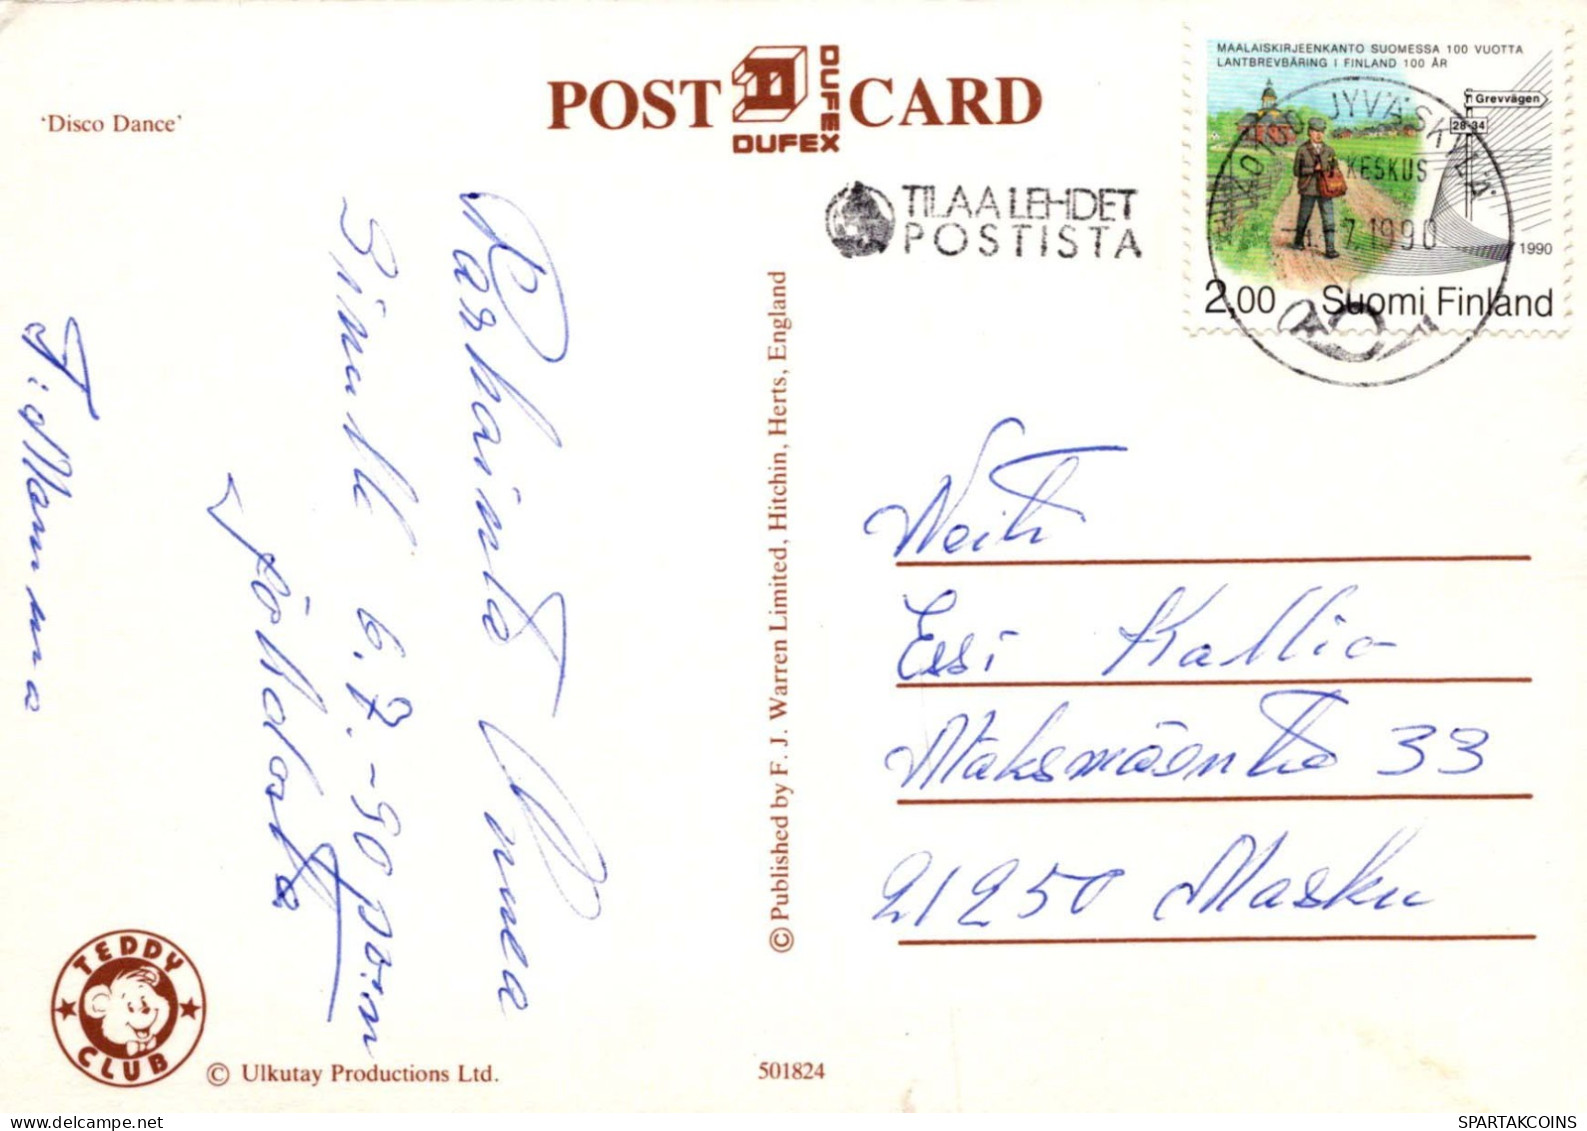 'Disco Dance'
POST CARD
DUFEX
DUFEX
MAALAISKIRJEENKANTO SUOMESSA 100 VUOTTA
LANTBREVBÄRING I FINLAND 100 ÅR
Grevvägen
28-34
1990
2,00 Suomi Finland
JYVÄSKYLÄ
KESKUS
7.1990
TILAA LEHDET
POSTISTA
Parhainta Onnea
Sinulle 6.7.-90
Neiti
Essi Kallio
Maksmäentie 33
21250 Masku
© Published by F. J. Warren Limited, Hitchin, Herts, England
TEDDY
CLUB
© Ulkutay Productions Ltd.
501824
SPARTAKCOINS